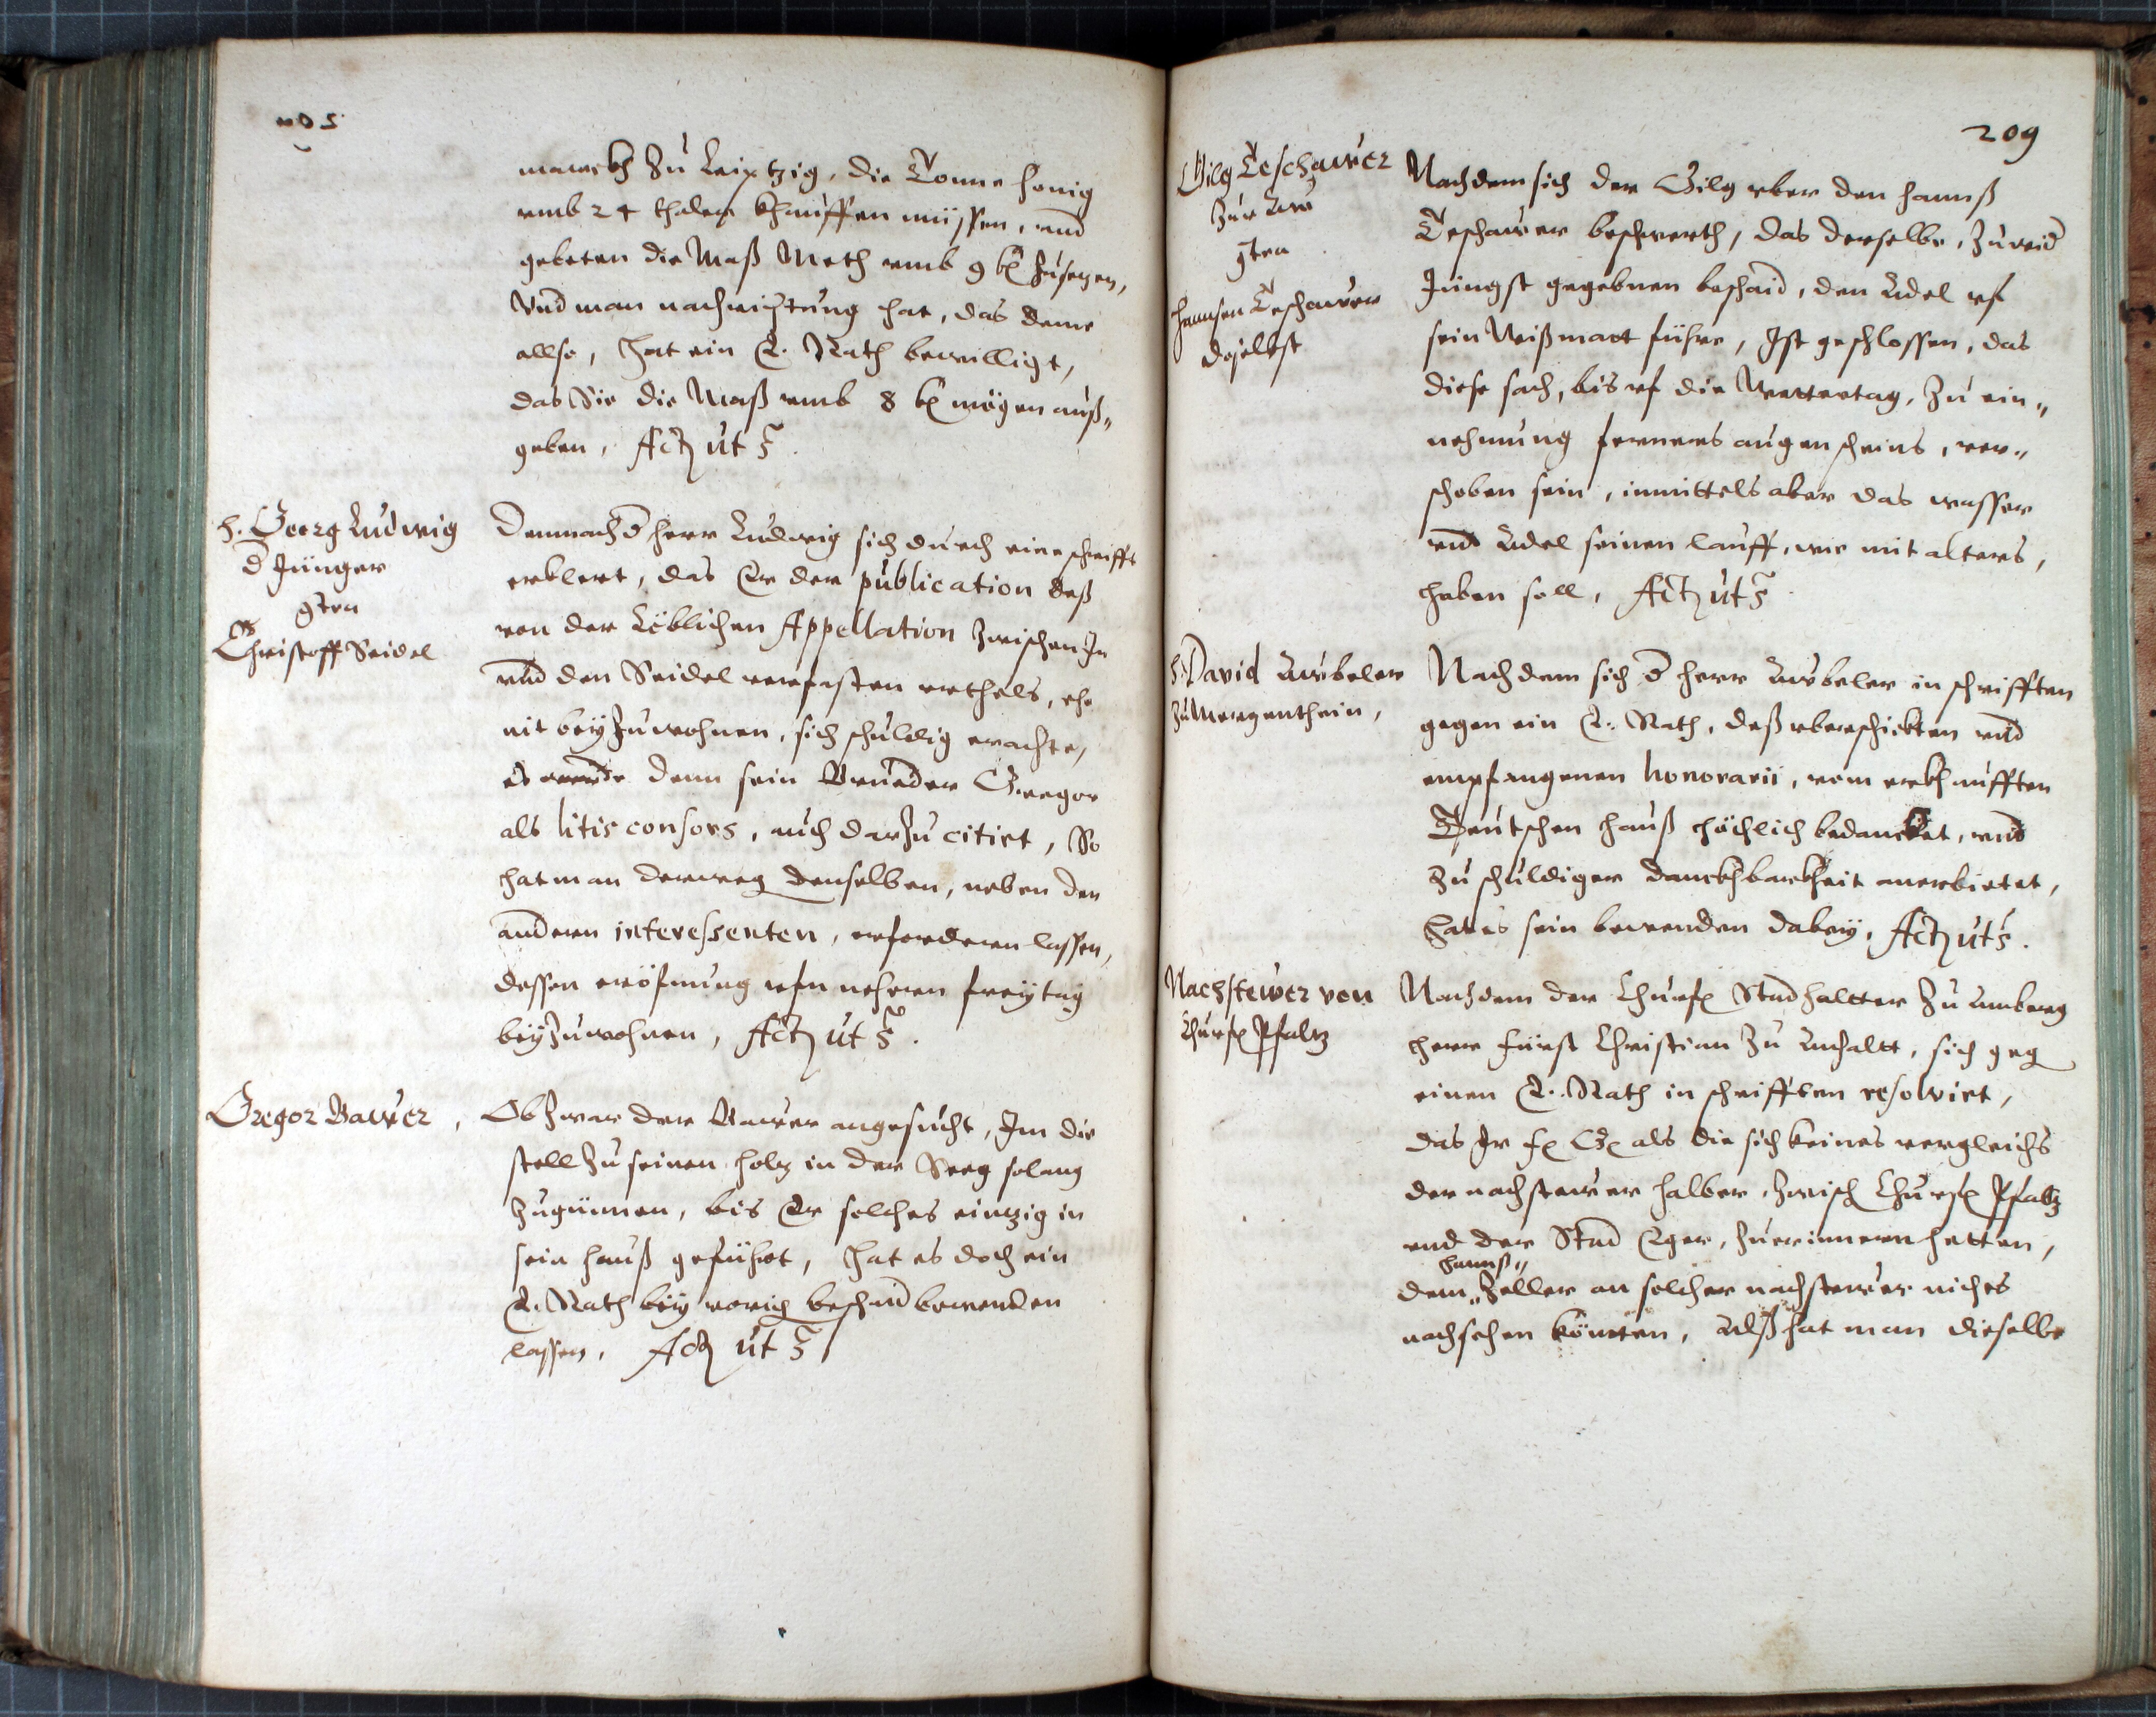 marckh zu Leiptzig, die Tonne honig
umb 24 thaler khauffen müssen, und
gebeten die Maß Meth umb 9 kr zusetzen,
Und man nachrichtung hat, das deme
allso, Hat ein E. Rath bewilligt,
das Sie die Maß umb 8 kr mögen auß„
geben, Act ut s.
H. Georg Ludwig
d Jünger
gten
Christoff Seidel
Demnach d herr Ludwig sich durch eine schrifft
erklert, das Er der publication deß
von der Löblichen Appellation zwischen Im
und den Seidel verfasten urthels, ehe
nit beyzuwohnen, sich schuldig erachte,
es werde denn sein Brueder Gregor
als litis consors, auch darzu citirt, So
hat man derweg denselben, neben den
andern interessenten, erfordern lassen,
dessen eröfnung ufm nehern freytag
beyzuwohnen, Act ut s.
Gregor Bawer,
Ob zwar der Bawer angesucht, Im die
stell zu seinen holtz in der Seeg solang
zugünnen, bis Er solches eintzig in
sein hauß geführt, Hat es doch ein
E. Rath bey vorig beschaid bewenden
lassen, Act ut s
209
Gilg Teschawer
zur Aw
gten
Hannsen Teschawer
doselbst
Nachdem sich der Gilg uber den hannß
Teschawer beschwerth, das derselbe, zuwid
Jüngst gegebnen beschaid, den Adel uf
sein Wißmatt führe, Ist geschlossen, das
diese sach, bis uf die Wettertag, zu ein„
nehmung ferners augenscheins, ver„
schoben sein, inmittels aber das wasser
und Adel seinen lauff, wie mit alters,
haben soll, Act ut s
H. David
zu Mergenthein,
Nachdem sich d herr in schrifften
gegen ein E. Rath, deß uberschickten und
empfangenen honorarii, vom erkhaufften
Teutschen hauß höchlich bedancket, und
zu schuldiger danckhbarkheit anerbietet,
Hat es sein bewenden dabey, Act ut s.
Nachstewer von
Churf Pfaltz
Nachdem der Churf Stadhaltter zu Amberg
herr Fürst Christian zu Anhaltt, sich geg
einen E. Rath in schrifften resolvirt,
das Ir f G als die sich keines vergleichs
der nachstewer halber, zwisch Churf Pfaltz
und der Stad Eger, zuerinnern hetten,
hannß„
dem„ Zeller an solcher nachstewer nichts
nachsehen könten, Alß hat man dieselbe